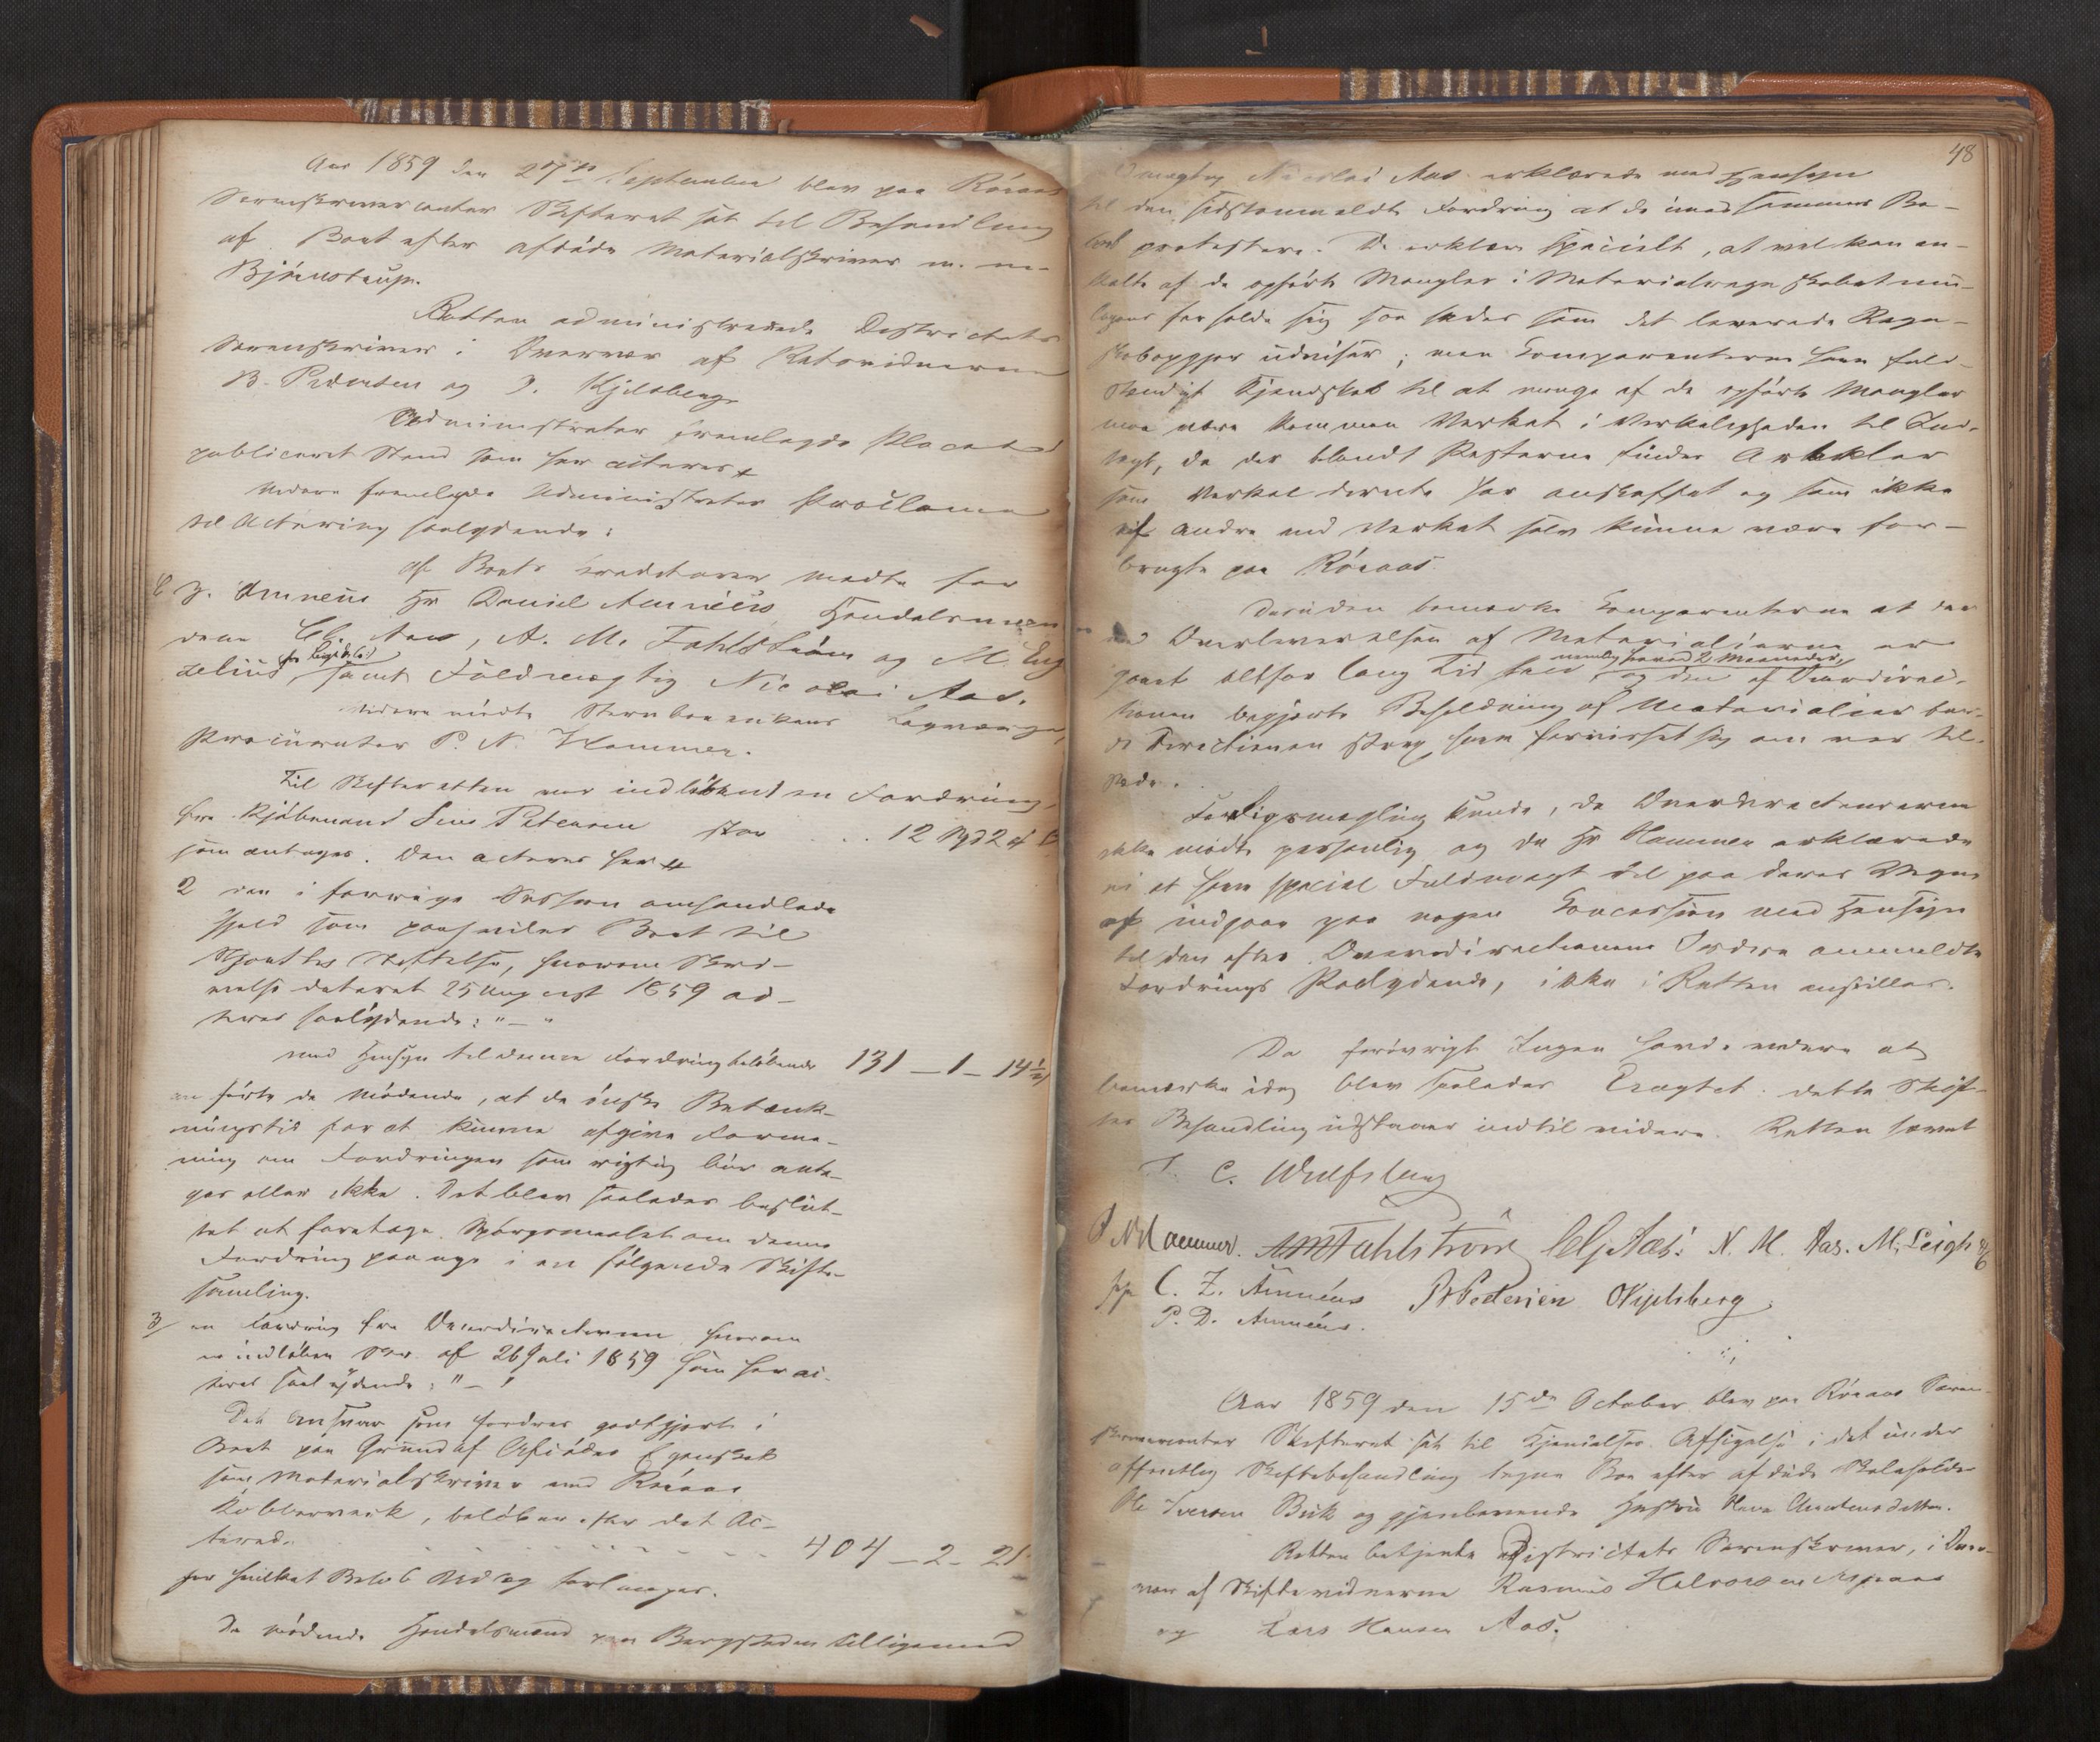 Aar 1859 den 27de September blev paa Röraas
Sorenskrivercontor Skifteret sat til Behandling
af Boet efter afdöde Materialskriver
Björnstrup.
Retten administreredes Districtets
Sorenskriver i Overvær af Retsvidnerne
B. Pedersen og O. Kjelsberg
Administrator fremlagde Placat
publiceret Stand som her acteres
Videre fremlagde Administrator Proclama
til Actering saalydende:
Af Boets Creditorer mödte for
C. Z. Amnéus Hr Daniel Amnéus, Handelsmæn
dene Elj. Aas, A. M. Fahlström og M. Eng
zelius, samt Fuldmægtig Nicolai Aas.
Videre mödte Stervboenkens Laugværge,
Procurator P. N. Hammer.
Til Skifteretten var indlöbend en Fordring
fra Kjöbmand Sens Petersen stor .. 12 Spd 2
som antages. Den acteres her
2 den i forrige Session omhandlede
Gjeld som paahviler Boet til
Stiftelse, hvorom Skri-
velse dateret 25 August 1859 ac-
teres saalydende: " — "
Med Hensyn til denne Fordring belöbende 131 — 1 — 14½
anförte de Mödende, at de önske Betænk-
ningstid for at kunne afgive Forme-
ning om Fordringen som rigtig bör anta-
ges eller ikke. Det blev saaledes beslut-
tet at foretage Spörgsmaalet om denne
Fordring paa nye i en fölgende Skifte-
samling.
3/ en Fordring fra Overdirectionen hvorom
er indlöben Skr. af 26 Juli 1859 som her ac-
teres saalydende: " — "
Det Ansvar som fordres godtgjort i
Boet paa Grund af Afdödes Egenskab
som Materialskriver ved Röraas
Kobberværk, belöber efter det Ac-
terede - - - - - - 404 — 2 - 21
for hvilket Belöb Udlæg forlanges.
De mödende Handelsmænd paa Bergstaden tilligemed
48
Fuldmægtig Nicolai Aas erklærede med Hensyn
til den sidstanmeldte Fordring at de imod sammes Be-
löb protestere. De erklære specielt, at vel kan en-
kelte af de opförte Mangler i Materialregnskabet mu-
ligens forholde sig saaledes som det leverede Regn-
skabsopgjör udviser; men Comparenterne have fuld-
stændigt Kjendskab til at mange af de opförte Mangler
maa være kommen Verket i Virkeligheden til Ind-
tægt, da der blandt Posterne findes Artikler
som Verket directe har anskaffet og som ikke
af andre end Verket selv kunne være for-
brugte paa Röraas.
Desuden bemærke Comparenterne at der
ved Overleverelsen af Materialierne er
nemlig hened 2 Maaneder,
gaaet altfor lang Tid hen og den af Overdirec-
tionen begjærte Beholdning af Materialier bur-
de Directionen strax have forvisset sig om var til-
stede.
Forligsmægling kunde, da Overdirecteurerne
ikke mödte personlig og da Hr Hammer erklærede
ei at have special Fuldmagt til paa deres Vegne
at indgaae paa nogen Concession med Hensyn
til den efter Overdirectionens Ordre anmeldte
Fordrings Paalydende, ikke i Retten anstilles.
Da forövrigt Ingen havde videre at
bemærke idag blev saaledes Eragtet: dette Skif-
tes Behandling udstaaer indtil videre. Retten hævet
C. Wulfsberg
P N Hammer. AMFahlström Elj Aas. N. M. Aas. M. Leigh
pp C. Z. Amnéus B Pedersen OKjelsberg
P. D. Amnéus.
Aar 1859 den 15de October blev paa Röraas Soren-
skrivercontor Skifteret sat til Kjendelses Afsigelse i det under
offentlig Skiftebehandling tagne Boe efter afdöde Skoleholder
Ole Iversen Buk og gjenlevende Hustru
Retten betjentes Districtets Sorenskriver, i Over-
vær af Skiftevidnerne Rasmus Halvorsen
og Lars Hansen Aas.